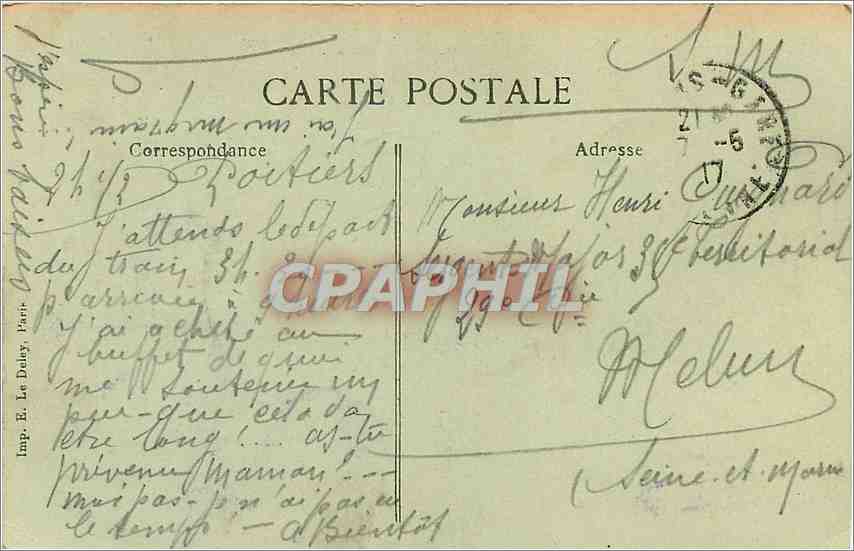 S.M
CARTE POSTALE
Correspondance
Adresse
J'ai un migraine
2h 1/2 Poitiers
J'attends le départ
du train 3h.
p. arriver à
J'ai acheté au
buffet de quoi
me soutenir un
peu - que cela va
être long! .... as-tu
prévenu Maman? ---
moi pas - je n'ai pas eu
le temps! - à Bientôt
Bons baisers
Monsieur Henri
Sergent Major 35e territorial
29e Cie
Melun
Seine-et-Marne
21
7 -5
17
Imp. E. Le Deley, Paris
CPARAMA